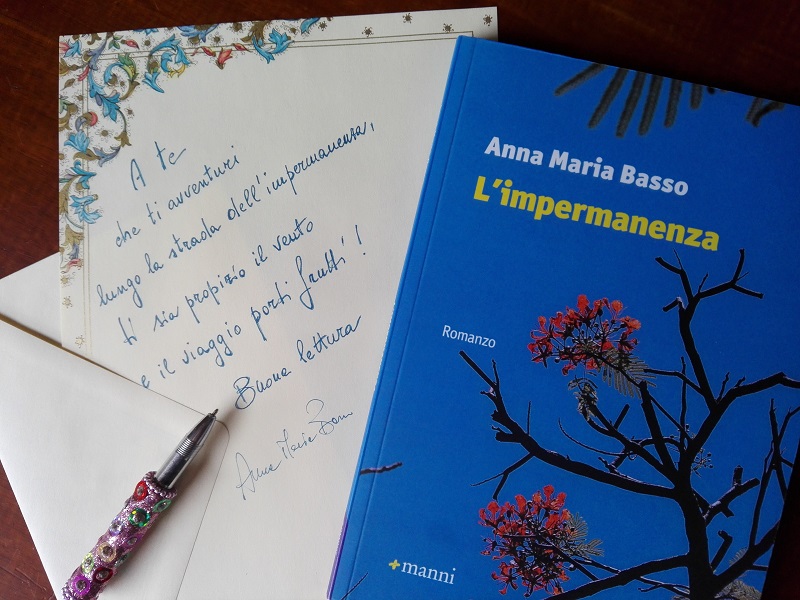 A te
che ti avventuri
lungo la strada dell'impermanenza,
ti sia propizio il vento
e il viaggio porti frutti!
Buona lettura
Anna Maria Basso
Anna Maria Basso
L'impermanenza
Romanzo
+manni